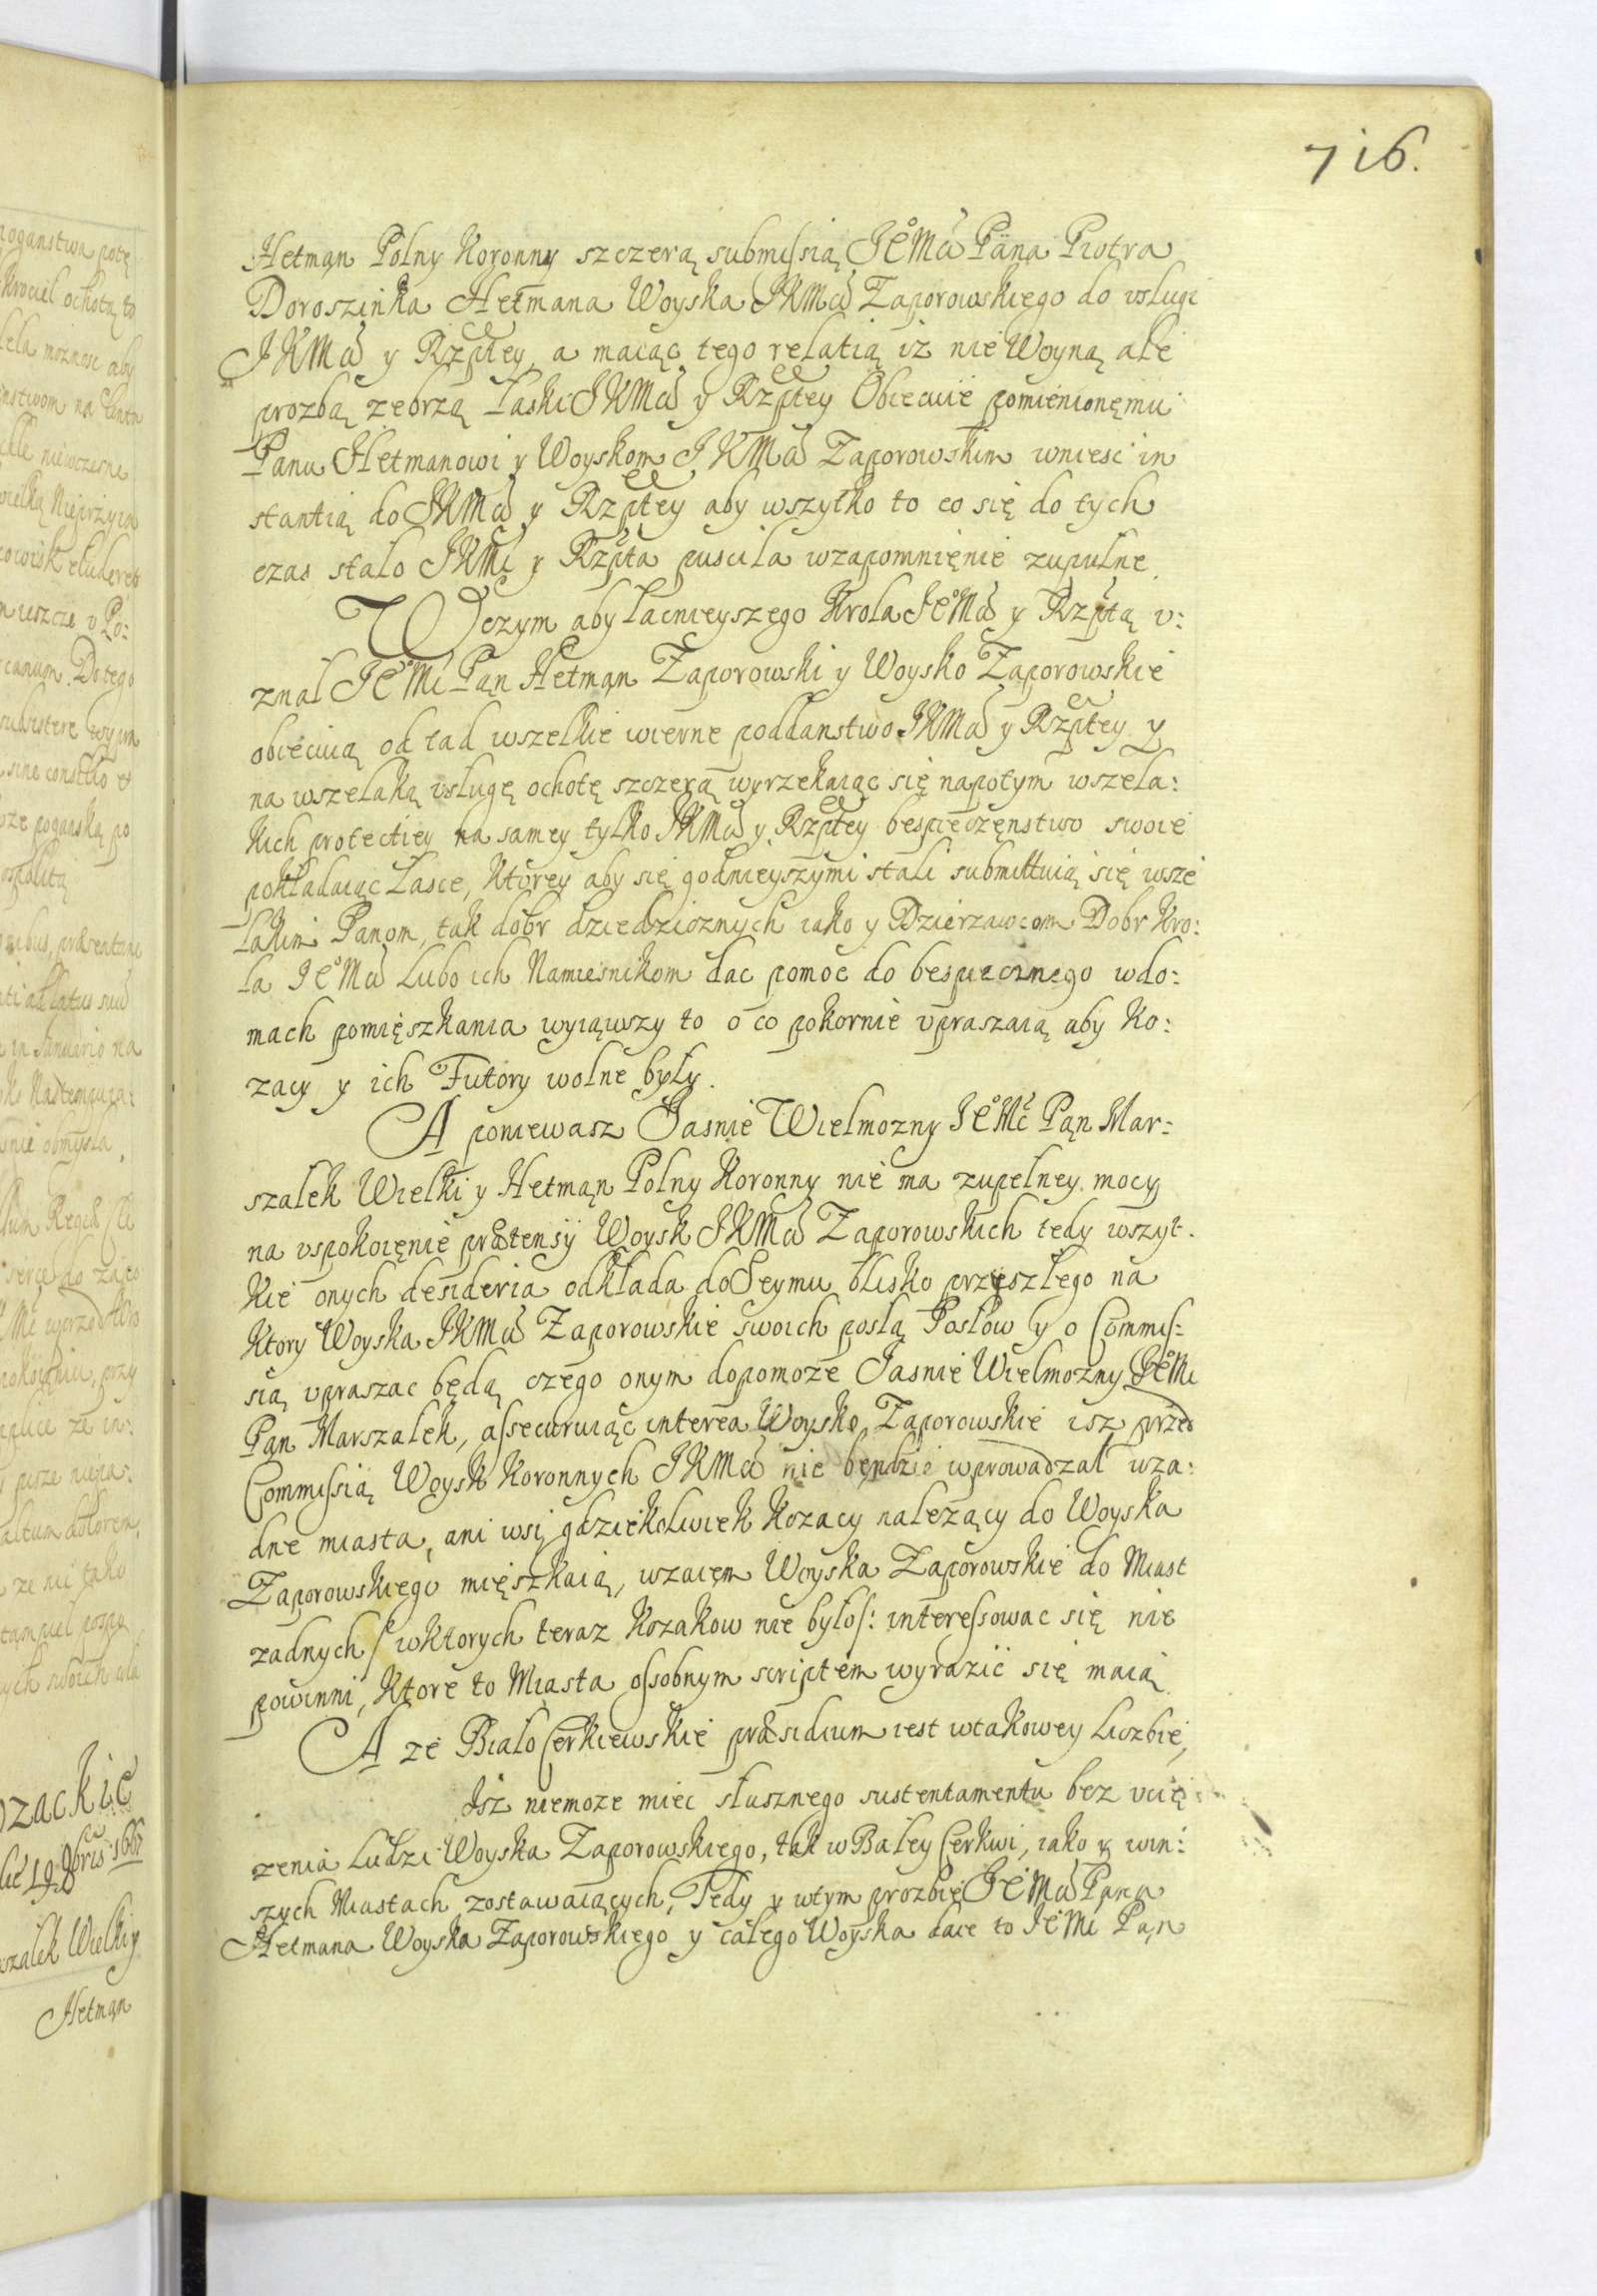 716.
Hetmąn Polny Koronny szczerą submissią JeoMci Pana Piotra
Doroszinka Hetmana Woyska JKMci Zaporowskiego do vslugi
JKMci y Rzptey, a maiąc tego relatią iz nie Woyną ale
prozbą zebrzą Łaski JKMci y Rzptey Obiecuie pomienionęmu
Panu Hetmanowi y Woyskom JKMci Zaporowskim wniesc in
stantią do JKMci y Rzptey aby wszytko to co się do tych
czas stalo JKMc y Rzpta puscila wzapomnięnie zupulne.
Wczym aby Łacnieyszego Krola JeoMci y Rzptą v:
znal JeoMc Pąn Hetmąn Zaporowski y Woysko Zaporowskie
obiecuią od tad wszelkie wierne poddanstwo JKMci y Rzptey y
na wszelaką vslugę ochotę szczerą wyrzekaiąc się napotym wszela:
kich protectiey na samey tylko JKMci y Rzptey bespieczęnstwo swoie
pokładaiąc Łasce, Ktorey aby się godnieyszymi stali submittuią się wsze
Lakim Panom, tak dobr dziedzicznych iako y Dzierzawcom Dobr Kro:
la JeoMci Lubo ich Namiesnikom dac pomoc do bespiecznego wdo:
mach pomięszkania wyiąwszy to o co pokornie vpraszaią aby Ko:
zacy y ich Futory wolne były.
A poniewasz Jasnie Wielmozny JeoMc Pąn Mar:
szalek Wielki y Hetmąn Polny Koronny nie ma zupelney mocy
na vspokoięnie prætensÿ Woysk JKMci Zaporowskich tedy wszyt.
kie onych desideria odkłada do Seymu blisko przyszłego na
ktory Woyska JKMci Zaporowskie swoich poslą Posłow y o Commis:
sią vpraszac będą czego onym dopomoze Jasnie Wielmozny JeoMc
Pąn Marszalek, assecuruiąc interea Woysko Zaporowskie isz przed
Commissią Woysk Koronnych JKMci nie będzie wprowadzał wza:
dne miasta, ani wsi gdziekolwiek Kozacy nalezący do Woyska
Zaporowskiego mięszkaią, wzaięm Woyska Zaporowskie do Miast
zadnych /: wktorych teraz Kozakow nie bylo /: interessowac się nie
powinni, Ktore to Miasta ossobnym scriptem wyrazic się maią.
A ze BialoCerkiewskie præsidium iest wtakowey Liczbie,
Isz niemoze miec słusznego sustentamentu bez vcię
zenia Ludzi Woyska Zaporowskiego, tak w Baley Cerkwi, iako y win:
szych Miastach zostawaiących, Tedy y wtym prozbię JeoMci Pana
Hetmana Woyska Zaporowskiego y całego Woyska daie to JeoMc Pąn